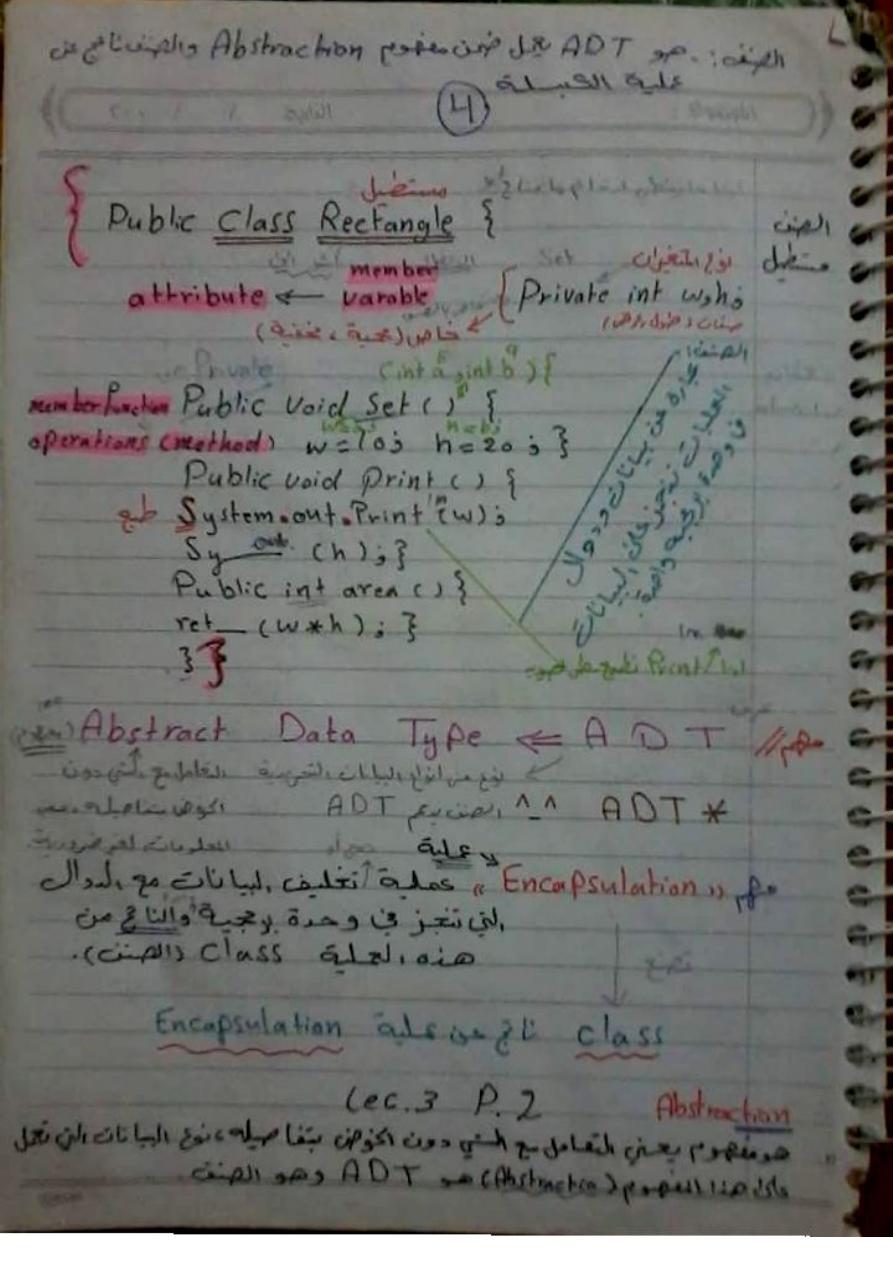 الصنف: هو ADT يعمل ضمن مفهوم Abstraction والصنف ناتج عن
عملية الكبسلة
4
مستطيل
Public Class Rectangle {
الصنف
مستطيل
نوع المتغيرات
member
attribute ← varable
Private int w,h;
خاص (محمية، مخفية)
صفات (طول، عرض)
(int a, int b) {
member function Public void Set ( ) {
operations (method) w=10; h=20; }
Public void Print ( ) {
طبع System.out.Print ln (w);
Sy out (h); }
Public int area ( ) {
ret (w*h); }
} }
الصنف:
عبارة عن بيانات ودوال
العمليات تنجز على البيانات
في وحدة برمجية واحدة
Print تطبع على
مهم // Abstract Data Type ⇐ A D T
نوع من انواع البيانات التجريدية التعامل مع الشي دون
* ADT ^_^ الصنف يدعم ADT
الخوض بتفاصيله
المعلومات الغير ضرورية
عملية
مهم "Encapsulation" عملية تغليف البيانات مع الدوال
التي تنجز في وحدة برمجية والناتج من
هذه العملية Class (الصنف).
تصنع
class ناتج عن عملية Encapsulation
Lec.3 P.2
Abstraction
هو مفهوم يعني التعامل مع الشي دون الخوض بتفاصيله، نوع البيانات التي تعمل
هذا المفهوم (Abstraction) هو ADT وهو الصنف.